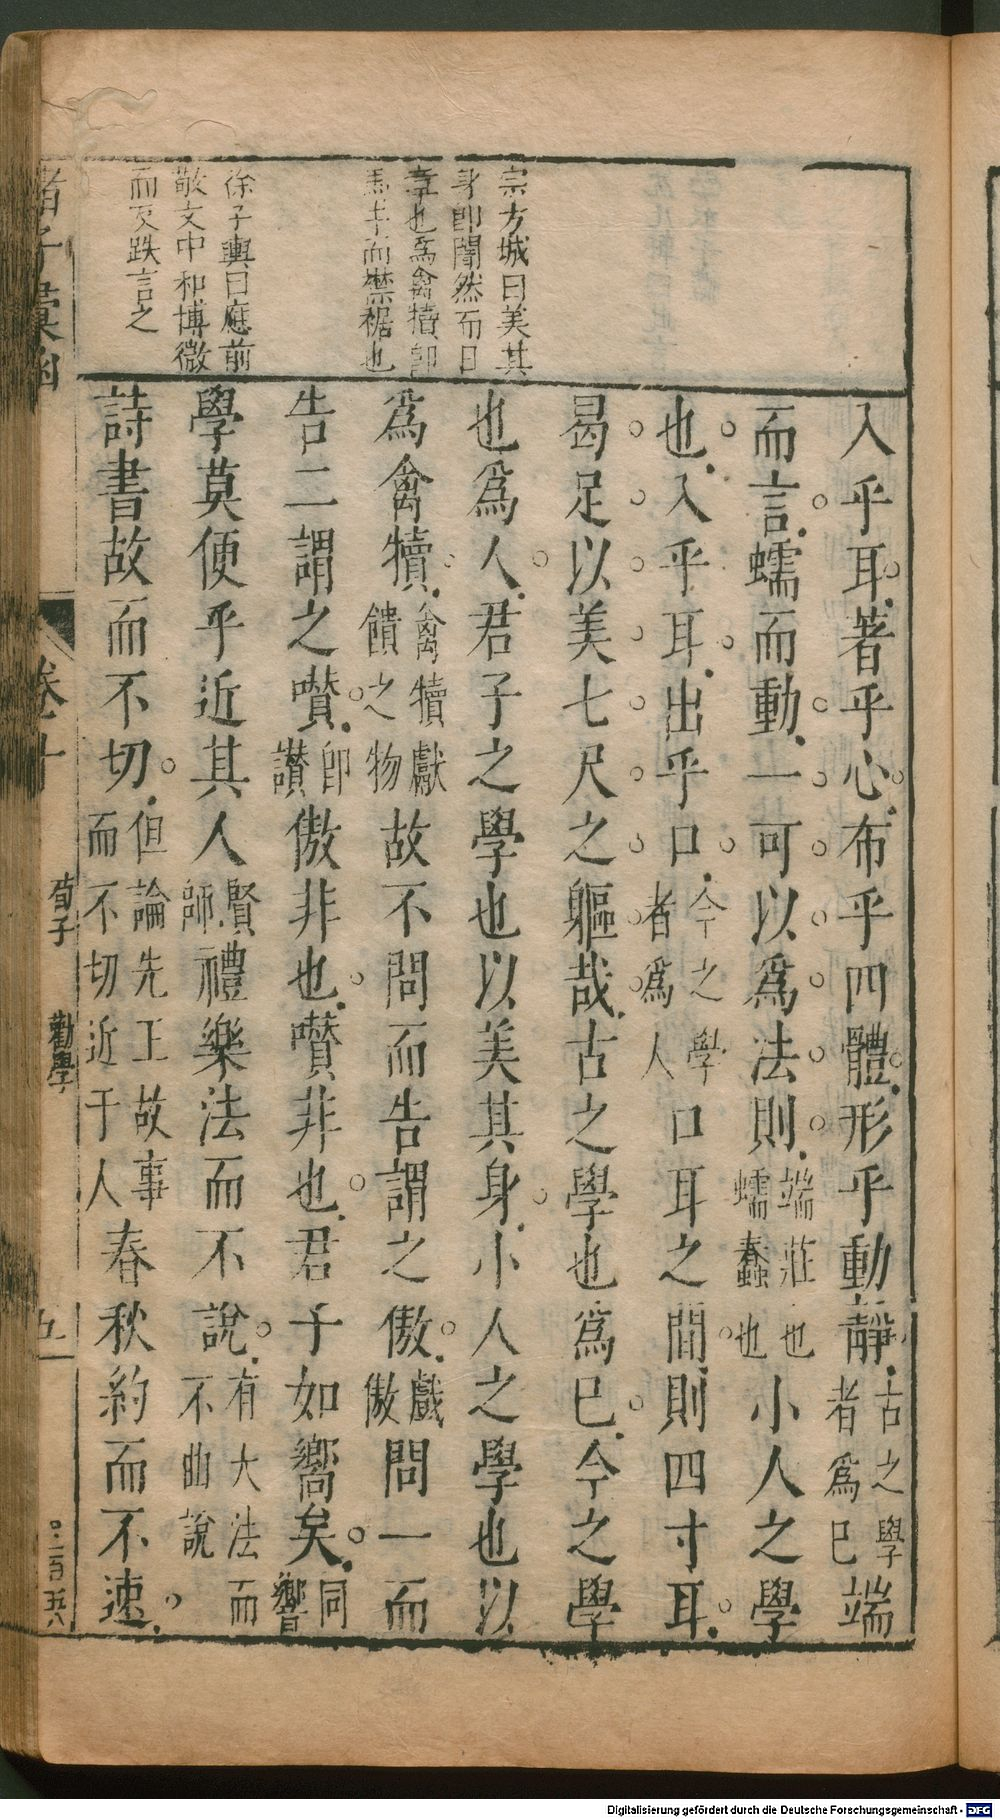 宗方城曰美其
身卽闇然而日
章也爲禽犢卽
馬牛而襟裾也
徐子輿曰應前
敬文中和博微
而反跌言之
入乎耳著乎心布乎四體形乎動靜古之學者爲己端
而言蠕而動一可以爲法則端莊也蠕蠢也小人之學
也入乎耳出乎口今之學者爲人口耳之間則四寸耳
曷足以美七尺之軀哉古之學也爲己今之學
也爲人君子之學也以美其身小人之學也以
爲禽犢禽犢獻饋之物故不問而告謂之傲戲傲問一而
告二謂之囋卽讃傲非也囋非也君子如嚮矣同響
學莫便乎近其人賢師禮樂法而不說有大法而不曲說
詩書故而不切但論先王故事而不切近于人春秋約而不速
諸子彙函
卷十
荀子 勸學
五
口二百五八
Digitalisierung gefördert durch die Deutsche Forschungsgemeinschaft - DFG